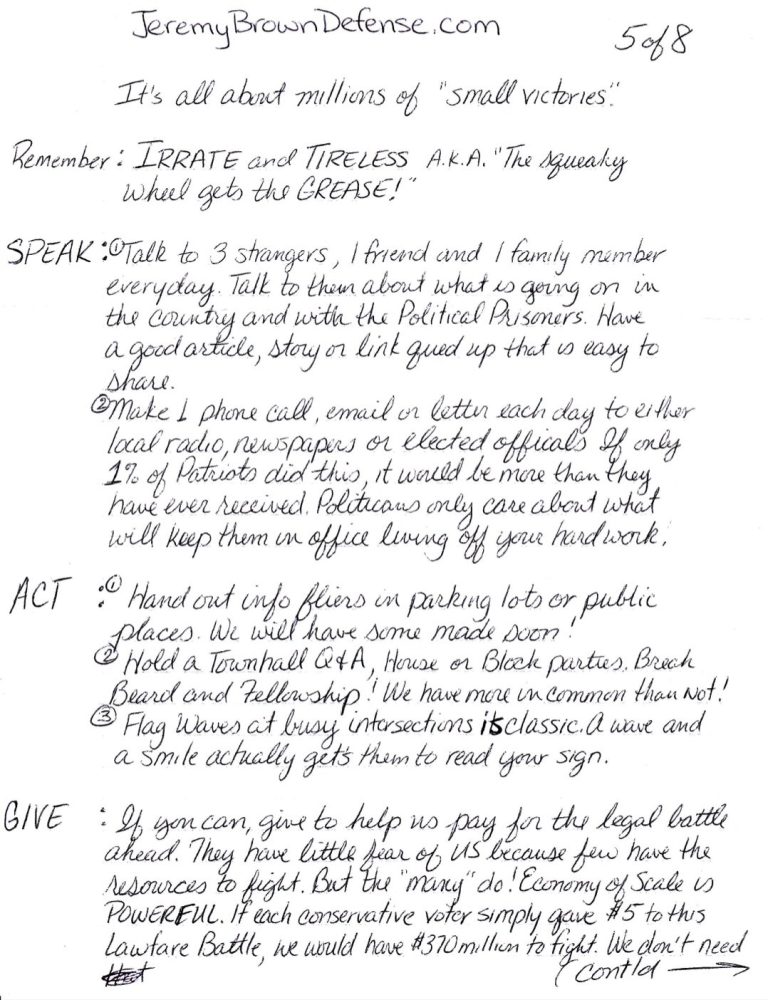 JeremyBrownDefense.com
5 of 8
It's all about millions of "small victories".
Remember: IRRATE and TIRELESS A.K.A. "The squeaky
wheel gets the GREASE!"
SPEAK: ① Talk to 3 strangers, 1 friend and 1 family member
everyday. Talk to them about what is going on in
the country and with the Political Prisoners. Have
a good article, story or link qued up that is easy to
share.
② Make 1 phone call, email or letter each day to either
local radio, newspapers or elected officals If only
1% of Patriots did this, it would be more than they
have ever received. Politicans only care about what
will keep them in office living off your hard work.
ACT: ① Hand out info fliers in parking lots or public
places. We will have some made soon!
② Hold a Townhall Q&A, House or Block parties. Break
Beard and Fellowship! We have more in common than Not!
③ Flag Waves at busy intersections is classic. A wave and
a smile actually gets them to read your sign.
GIVE: If you can, give to help us pay for the legal battle
ahead. They have little fear of US because few have the
resources to fight. But the "many" do! Economy of Scale is
POWERFUL. If each conservative voter simply gave $5 to this
Lawfare Battle, we would have $370 million to fight. We don't need
(cont'd →